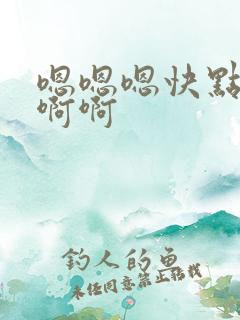 嗯嗯嗯快點
啊啊
釣人的魚
未经同意禁止转载